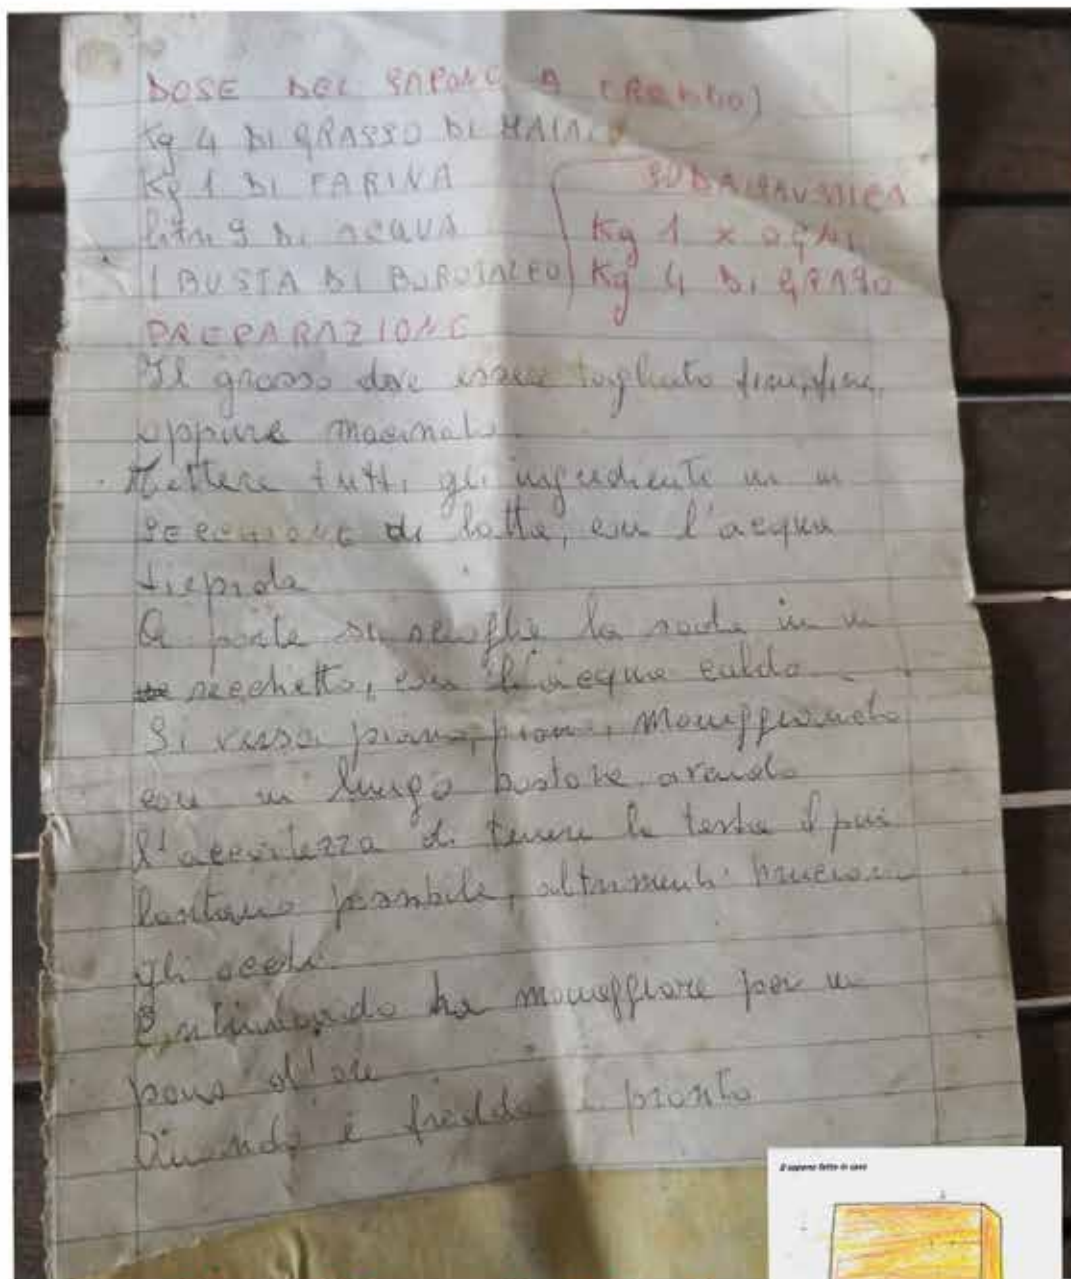 DOSE DEL SAPONE A (REDDO)
Kg 4 DI GRASSO DI MAIALE
Kg 1 DI FARINA
litri 9 DI ACQUA
1 BUSTA DI BOROTALCO
SODA CAUSTICA
Kg 1 x OGNI
Kg 4 DI GRASSO
PREPARAZIONE
Il grasso deve essere tagliato fine, fine,
oppure macinato.
Mettere tutti gli ingredienti in un
secchione di latta, con l'acqua
tiepida
A parte si scioglie la soda in un
secchetto, con l'acqua calda
Si versa piano, piano, maneggiando
con un lungo bastone, avendo
l'accortezza di tenere la testa il più
lontano possibile, altrimenti bruciano
gli occhi.
Continuando ha maneggiare per un
paio d'ore
Quando è freddo è pronto
Il sapone fatto in casa